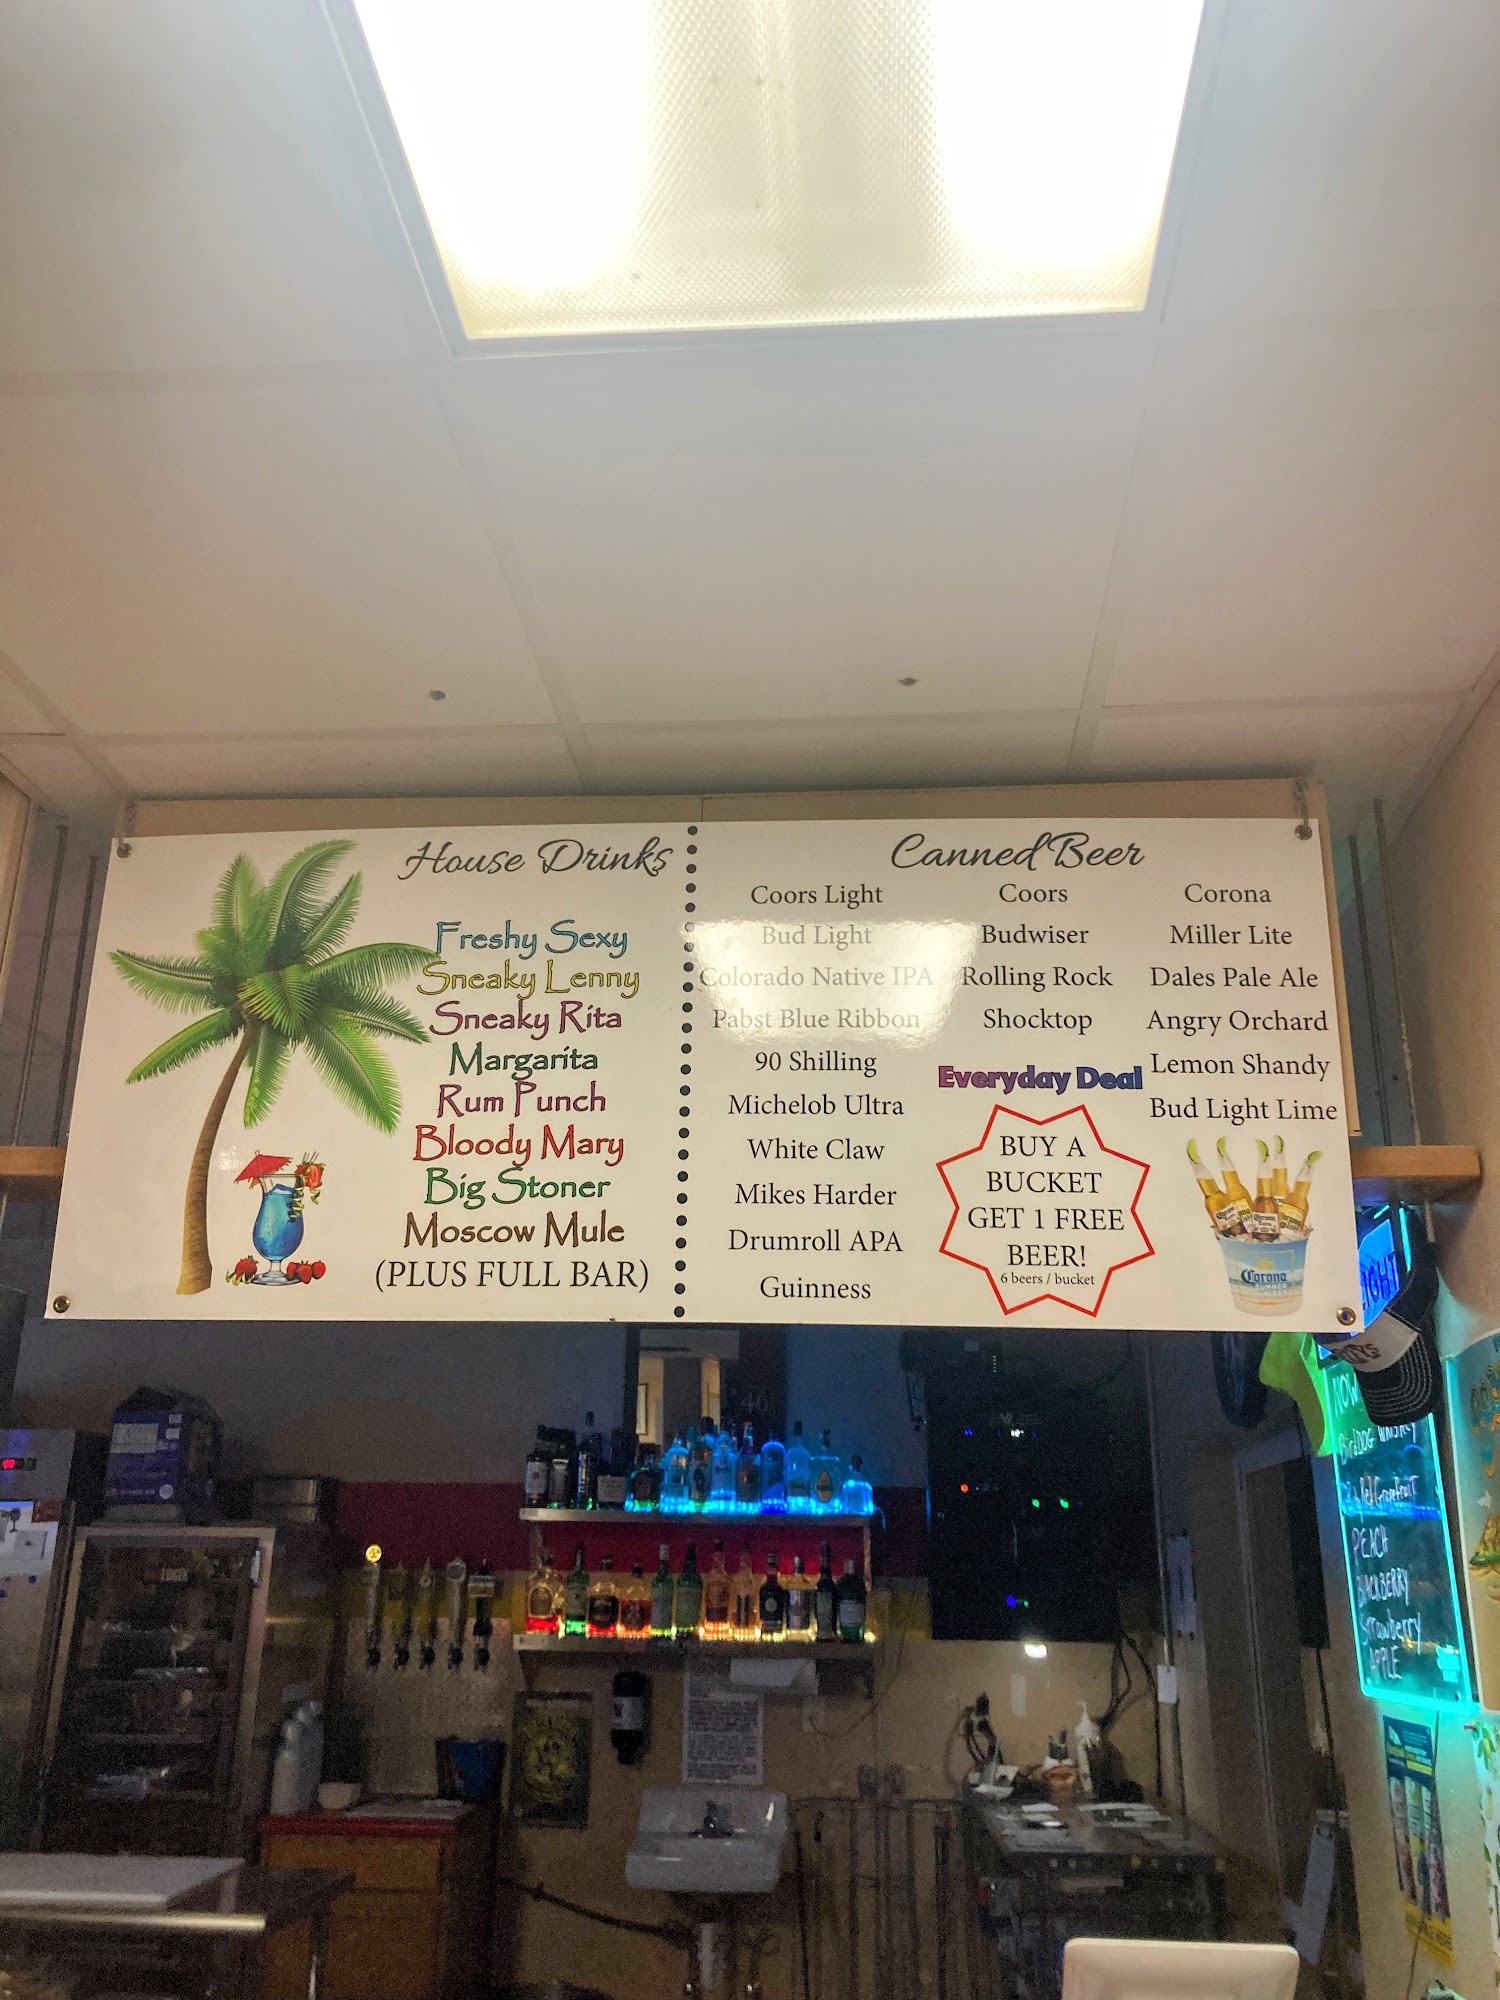 House Drinks
Freshy Sexy
Sneaky Lenny
Sneaky Rita
Margarita
Rum Punch
Bloody Mary
Big Stoner
Moscow Mule
(PLUS FULL BAR)
Canned Beer
Coors Light
Bud Light
Colorado Native IPA
Pabst Blue Ribbon
90 Shilling
Michelob Ultra
White Claw
Mikes Harder
Drumroll APA
Guinness
Coors
Budwiser
Rolling Rock
Shocktop
Everyday Deal
BUY A
BUCKET
GET 1 FREE
BEER!
6 beers / bucket
Corona
Miller Lite
Dales Pale Ale
Angry Orchard
Lemon Shandy
Bud Light Lime
Corona
46
IGHT
NOW
BirdDOG WHISKEY
PEACH
BlACKBERRY
Strawberry
APPLE